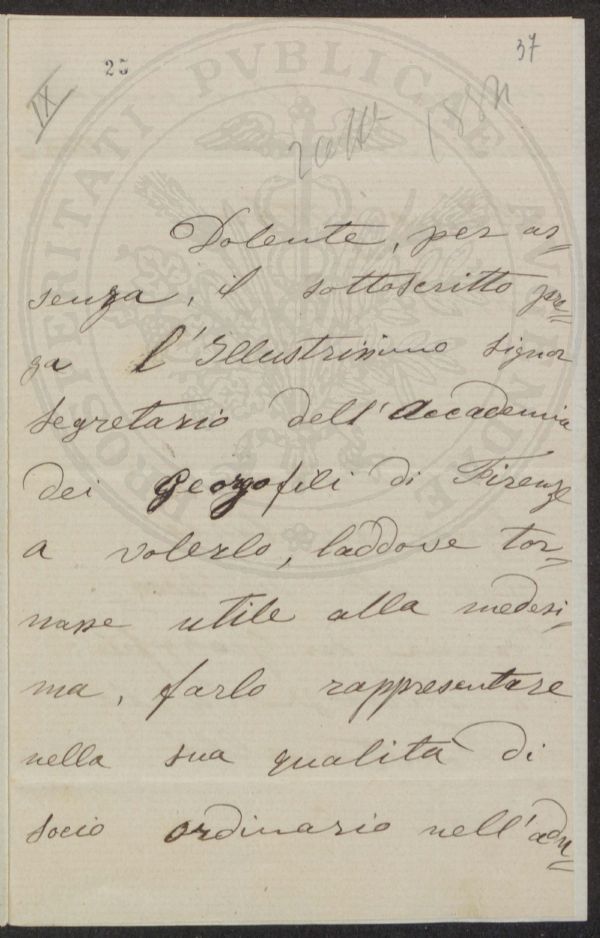 37
25
IX
1882
PROSPERITATI PVBLICAE AVGENDAE
Dolente, per as=
senza, il sottoscritto pre=
ga l'Illustrissimo signor
segretario dell'Accademia
dei Georgofili di Firenze
a volerlo, laddove tor=
nasse utile alla medesi=
ma, farlo rappresentare
nella sua qualità di
socio ordinario nell'adu=